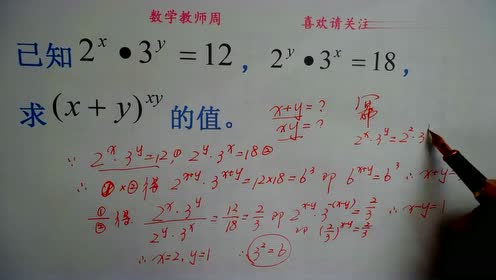 数学教师周 喜欢请关注
已知 2^x • 3^y = 12, 2^y • 3^x = 18,
求 (x + y)^{xy} 的值。
x+y=? 幂
xy=? 2^x·3^y=2^2·3
∵ 2^x·3^y=12① 2^y·3^x=18②
∴ ①×②得 2^{x+y}·3^{x+y}=12×18=6^3 即 6^{x+y}=6^3 ∴ x+y=
①/② 得 (2^x·3^y)/(2^y·3^x)=12/18=2/3 即 2^{x-y}·3^{-(x-y)}=2/3 ∴ x-y=1
即 (2/3)^{x-y}=2/3
∴ x=2, y=1 ∴ 3^2=6